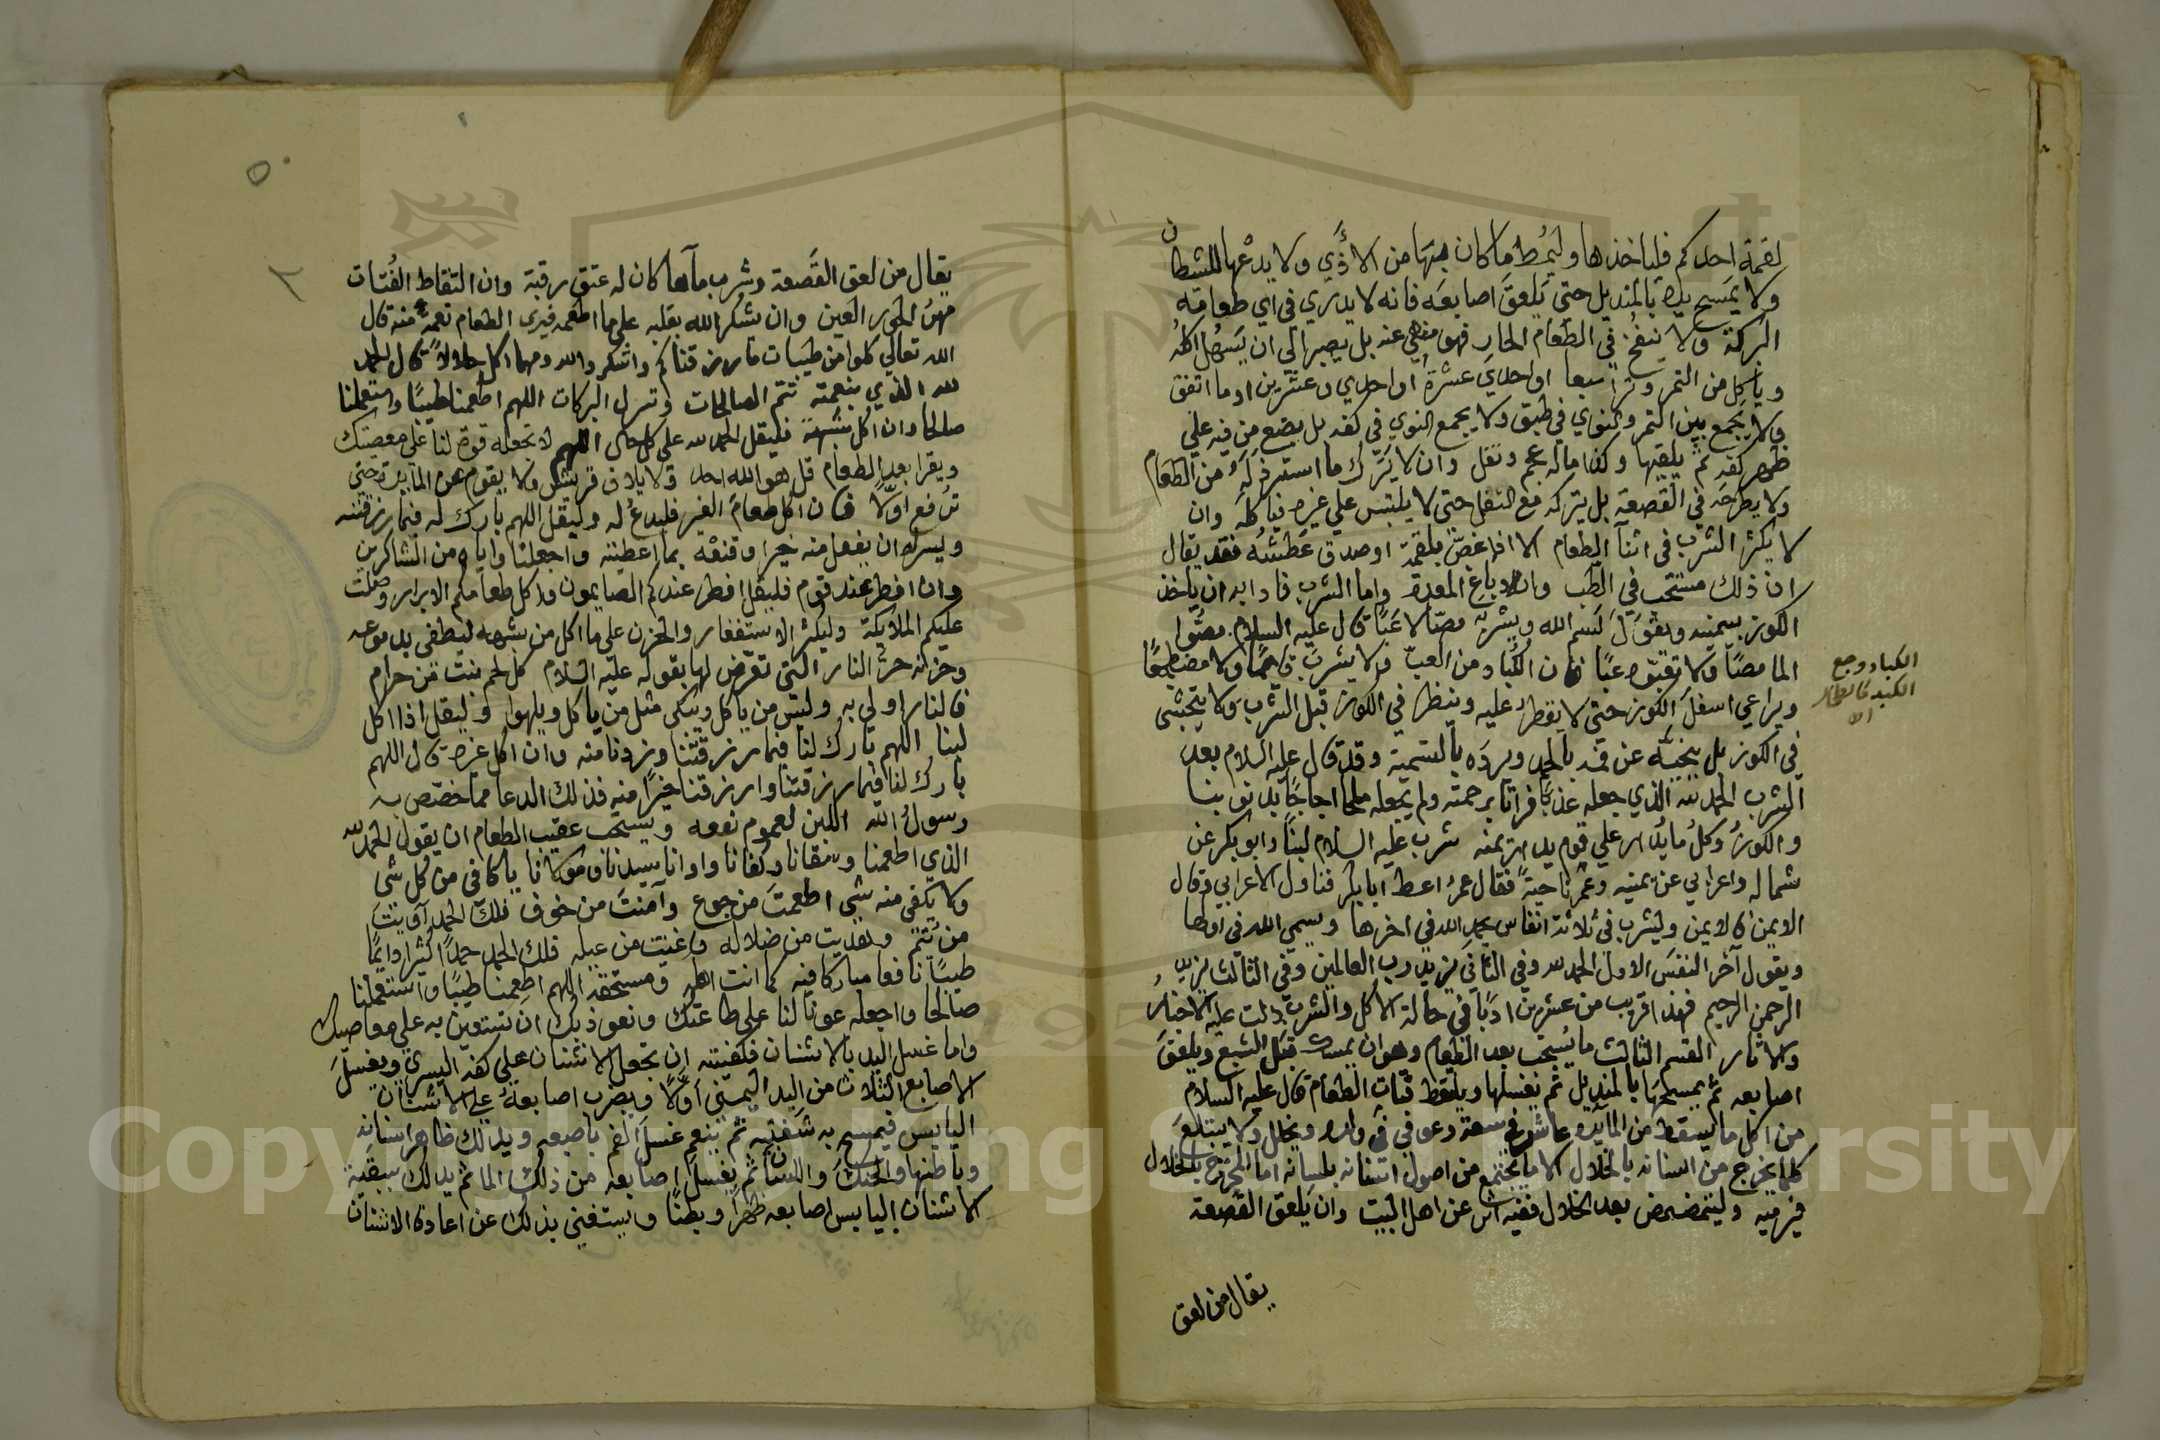 لقمة احدكم فلياخذها وليُمط ما كان بها من الاذي ولا يدعها للشيطان
ولا يمسح يده بالمنديل حتي يَلعق اصابعَه فانه لا يدري في اي طعامه
البركة ولا ينفخ في الطعام الحار فهو منهي عنه بل يصبر الي ان يَسهل اكلُه
وياكل من التمر وترا سبعا او احدي عشرة او احدي وعشرين او ما اتفق
ولا يَجمع بين التمر والنوي في طبق ولا يجمع النوي في كفه بل يضع من فيه علي
ظهر كفه ثم يلقيها وكذا ماله عجم وثفل وان لا يترك ما استرذله من الطعام
ولا يطرحه في القصعة بل يتركه مع الثفل حتي لا يلتبس علي غيره فياكله وان
لا يكثر الشرب في اثنا الطعام الا اذا غصّ بلقمة او صدق عَطَشُه فقد يقال
ان ذلك مستحب في الطب وانه دباغ المعدة واما الشرب فادابه ان ياخذ
الكوز بيمينه ويقول بسم الله ويشربه مصّا لا عَبّا قال عليه السلام مصُّوا
الما مصًّا ولا تعبّوه عبّا فان الكُباد من العبّ ولا يشرب قايما ولا مضطجعًا
ويراعي اسفل الكوز حتي لا يقطر عليه وينظر في الكوز قبل الشرب ولا يتجشي
في الكوز بل ينحيّه عن فمه بالحمد ويردّه بالتسمية وقد قال عليه السلام بعد
الشرب الحمد لله الذي جعله عذبًا فراتا برحمته ولم يجعله ملحا اجاجًا بذنوبنا
والكوزُ وكلُ ما يُدار علي قوم يدار يمنه شرب عليه السلام لبنًا وابو بكر عن
شماله واعرابي عن يمينه وعمر ناحيةً فقال عمرُ اعط ابا بكر فناول الاعرابي وقال
الايمن فالايمن وليشرب في ثلاثة انفاس يحمد الله في اخرها ويسمي الله في اولها
ويقول آخر النفَس الاول الحمد لله وفي الثاني يزيد رب العالمين وفي الثالث يزيد
الرحمن الرحيم فهذا قريب من عشرين ادبًا في حالة الاكل والشرب دلت عليه الاخبارُ
والاثار القسم الثالث ما يُستحب بعد الطعام وهو ان يمسك قبل الشبع ويلعق
اصابعه ثم يمسحها بالمنديل ثم يغسلها ويلتقط فتات الطعام قال عليه السلام
من اكل ما يسقط من المآيده عاش في سعة وعوفي في ولده ويتخلل ولا يبتلع
كلما يخرج من اسنانه بالخلال الا ما يجتمع من اصول اسنانه بلسانه اما المخرج بالخلال
فيرميه وليتمضمض بعد الخلال ففيه اثر عن اهل البيت وان يَلعق القصعة
يقال من لعق
الكباد وجع
الكبد
يقال من لعق القَصعة وشرب مآها كان له عتق رقبة وان التقاط الفُتات
مهرُ الحور العين وان يشكر الله بقلبه علي ما اطعمه فيري الطعام نعمةً منه قال
الله تعالي كلوا من طيبات ما رزقناكم واشكروا لله ومهما اكل حلالاً قال الحمد
لله الذي بنعمته تتم الصالحات وتنزل البركات اللهم اطعمنا طيبًا واستعملنا
صالحا وان اكل شبهة فليقل الحمد لله علي كل حال اللهم لا تجعله قوة لنا علي معصيتك
ويقرا بعد الطعام قل هو الله احد ولايلاف قريش ولا يقوم عن المايدة حتي
تُرفع اوّلاً فان اكل طعام الغير فليدعُ له وليقل اللهم بارك له فيما رزقته
ويسر له ان يفعل منه خيرا وقنعْه بما اعطيته واجعلنا واياه من الشاكرين
وان افطر عند قوم فليقل افطر عندكم الصايمون واكل طعامكم الابرار وصلت
عليكم الملايكة وليكثر الاستغفار والحزن علي ما اكل من شبهه ليطفي بدموعه
وحزنه حرّ النار التي تعرّض لها بقوله عليه السلام كل لحم نبت من حرام
فالنار اولي به وليس من ياكل ويبكي مثل من ياكل ويلهوا وليقل اذا اكل
لبنا اللهم بارك لنا فيما رزقتنا وزدنا منه وان اكل غيره قال اللهم
بارك لنا فيما رزقتنا وارزقنا خيرًا منه فذلك الدعا مما خصّص به
رسولُ الله اللبن لعموم نفعه ويستحب عقيب الطعام ان يقول الحمد لله
الذي اطعمنا وسقانا وكفانا واوانا سيدنا ومولانا يا كافي من كل شي
ولا يكفي منه شي اطعمتَ من جوع وآمنتَ من خوف فلك الحمد آويتَ
من يُتم وهديت من ضلالة واغنيت من عيلة فلك الحمد حمدًا كثيرا دايمًا
طيبًا نافعا مباركا فيه كما انت اهله ومستحقه اللهم اطعمنا طيبًا واستعملنا
صالحا واجعله عونًا لنا علي طاعتك ونعوذ بك ان نستعين به علي معاصيك
واما غسل اليد بالاشنان فكيفيته ان يجعل الاشنان علي كفه اليسري ويغسلَ
الاصابع الثلاث من اليد اليمني اوّلاً ويضرب اصابعهُ علي الاشنان
اليابس فيمسح به شَفَتيه ثم ينعم غسلَ الفم باصبعه ويدلك ظاهر اسنانه
وباطنها والحنك واللسان ثم يغسل اصابعه من ذلك الما ثم يدلك ببقية
الاشنان اليابس اصابعه ظهراً وبطنًا ويستغني بذلك عن اعادة الاشنان